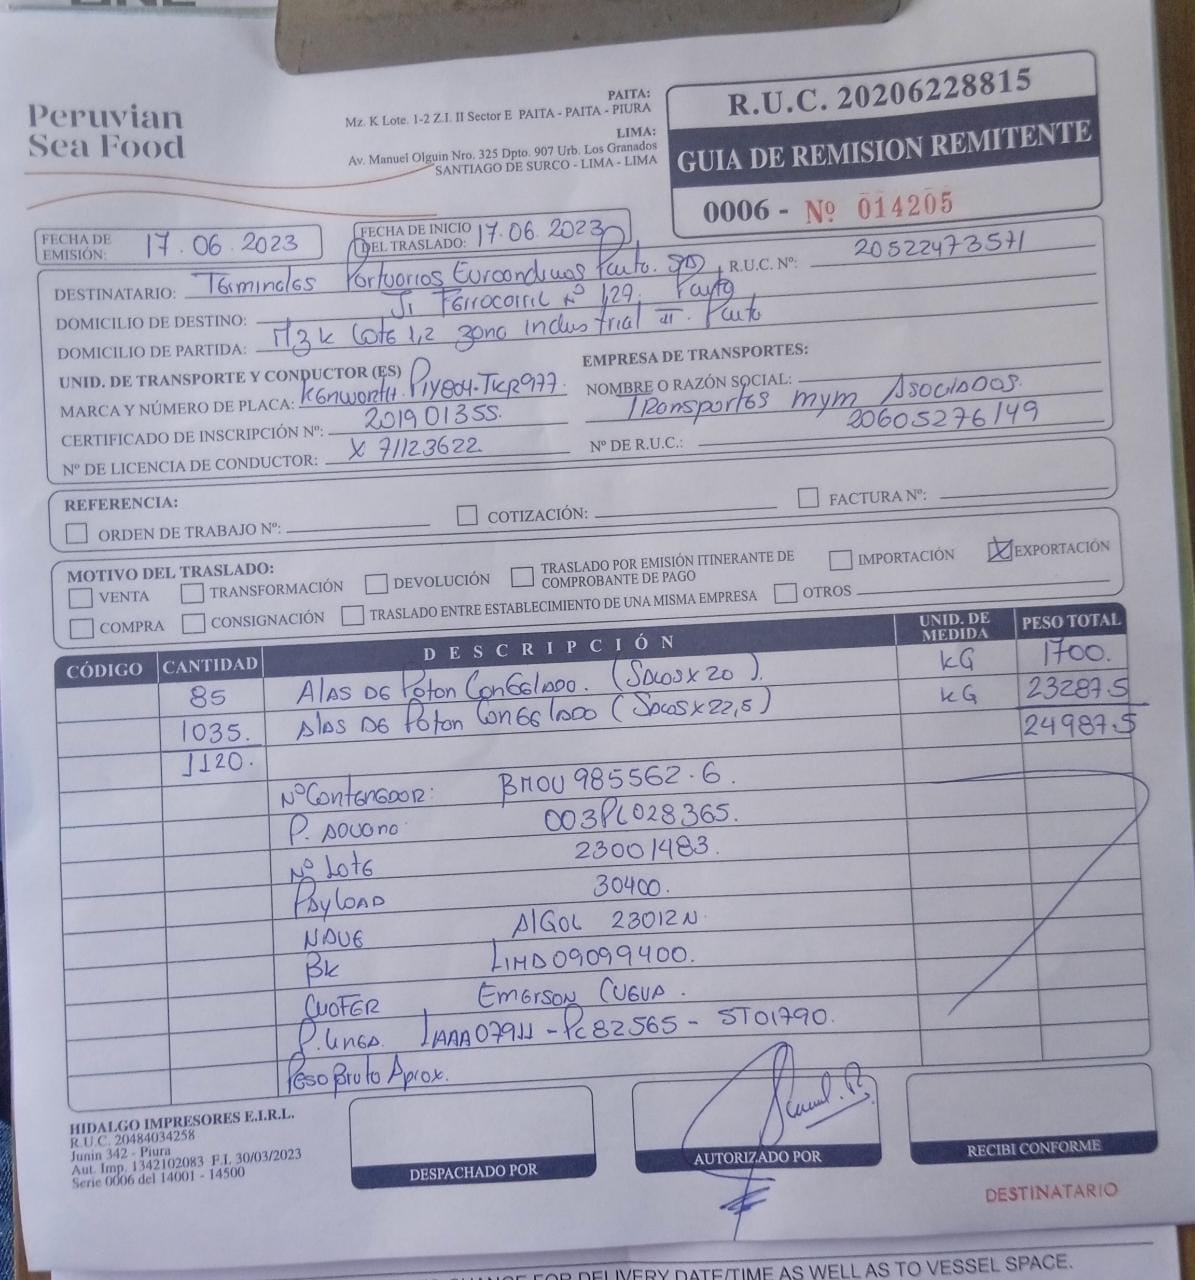 Peruvian
Sea Food
PAITA:
Mz. K Lote. 1-2 Z.I. II Sector E PAITA - PAITA - PIURA
LIMA:
Av. Manuel Olguin Nro. 325 Dpto. 907 Urb. Los Granados
SANTIAGO DE SURCO - LIMA - LIMA
R.U.C. 20206228815
GUIA DE REMISION REMITENTE
0006 - Nº 014205
FECHA DE EMISIÓN: 17.06.2023
FECHA DE INICIO DEL TRASLADO: 17.06.2023
DESTINATARIO: Terminales Portuarios Euroandinos Paita. SA R.U.C. Nº: 20522473571
DOMICILIO DE DESTINO: Jr Ferrocarril Nº 129. Payta
DOMICILIO DE PARTIDA: Mz K Lote 1,2 zona industrial II. Paita
UNID. DE TRANSPORTE Y CONDUCTOR (ES)
MARCA Y NÚMERO DE PLACA: Kenworth. P1Y804-TKR977.
CERTIFICADO DE INSCRIPCIÓN Nº: 20190135S.
Nº DE LICENCIA DE CONDUCTOR: X 71123622
EMPRESA DE TRANSPORTES:
NOMBRE O RAZÓN SOCIAL: Transportes mym Asociados.
Nº DE R.U.C.: 20605276149
REFERENCIA:
ORDEN DE TRABAJO Nº:
COTIZACIÓN:
FACTURA Nº:
MOTIVO DEL TRASLADO:
VENTA
TRANSFORMACIÓN
DEVOLUCIÓN
TRASLADO POR EMISIÓN ITINERANTE DE COMPROBANTE DE PAGO
IMPORTACIÓN
X EXPORTACIÓN
COMPRA
CONSIGNACIÓN
TRASLADO ENTRE ESTABLECIMIENTO DE UNA MISMA EMPRESA
OTROS
CÓDIGO CANTIDAD DESCRIPCIÓN UNID. DE MEDIDA PESO TOTAL
85 Alas de Poton Congelado. (Sacos x 20). KG 1700.
1035. Alas de Poton Congelado (Sacos x 22,5) KG 23287.5
1120. 24987.5
Nº Contenedor: BMOU 985562.6.
P. Aduana 003PL028365.
Nº Lote 23001483.
Payload 30400.
Nave Algol 23012N.
Bk LIMD09099400.
Chofer Emerson Cueva.
P. Linea. LAAA07911 - PC82565 - ST01790.
Peso Bruto Aprox.
HIDALGO IMPRESORES E.I.R.L.
R.U.C. 20484034258
Junin 342 - Piura
Aut. Imp. 1342102083 F.I. 30/03/2023
Serie 0006 del 14001 - 14500
DESPACHADO POR
AUTORIZADO POR
RECIBI CONFORME
DESTINATARIO
FOR DELIVERY DATE/TIME AS WELL AS TO VESSEL SPACE.